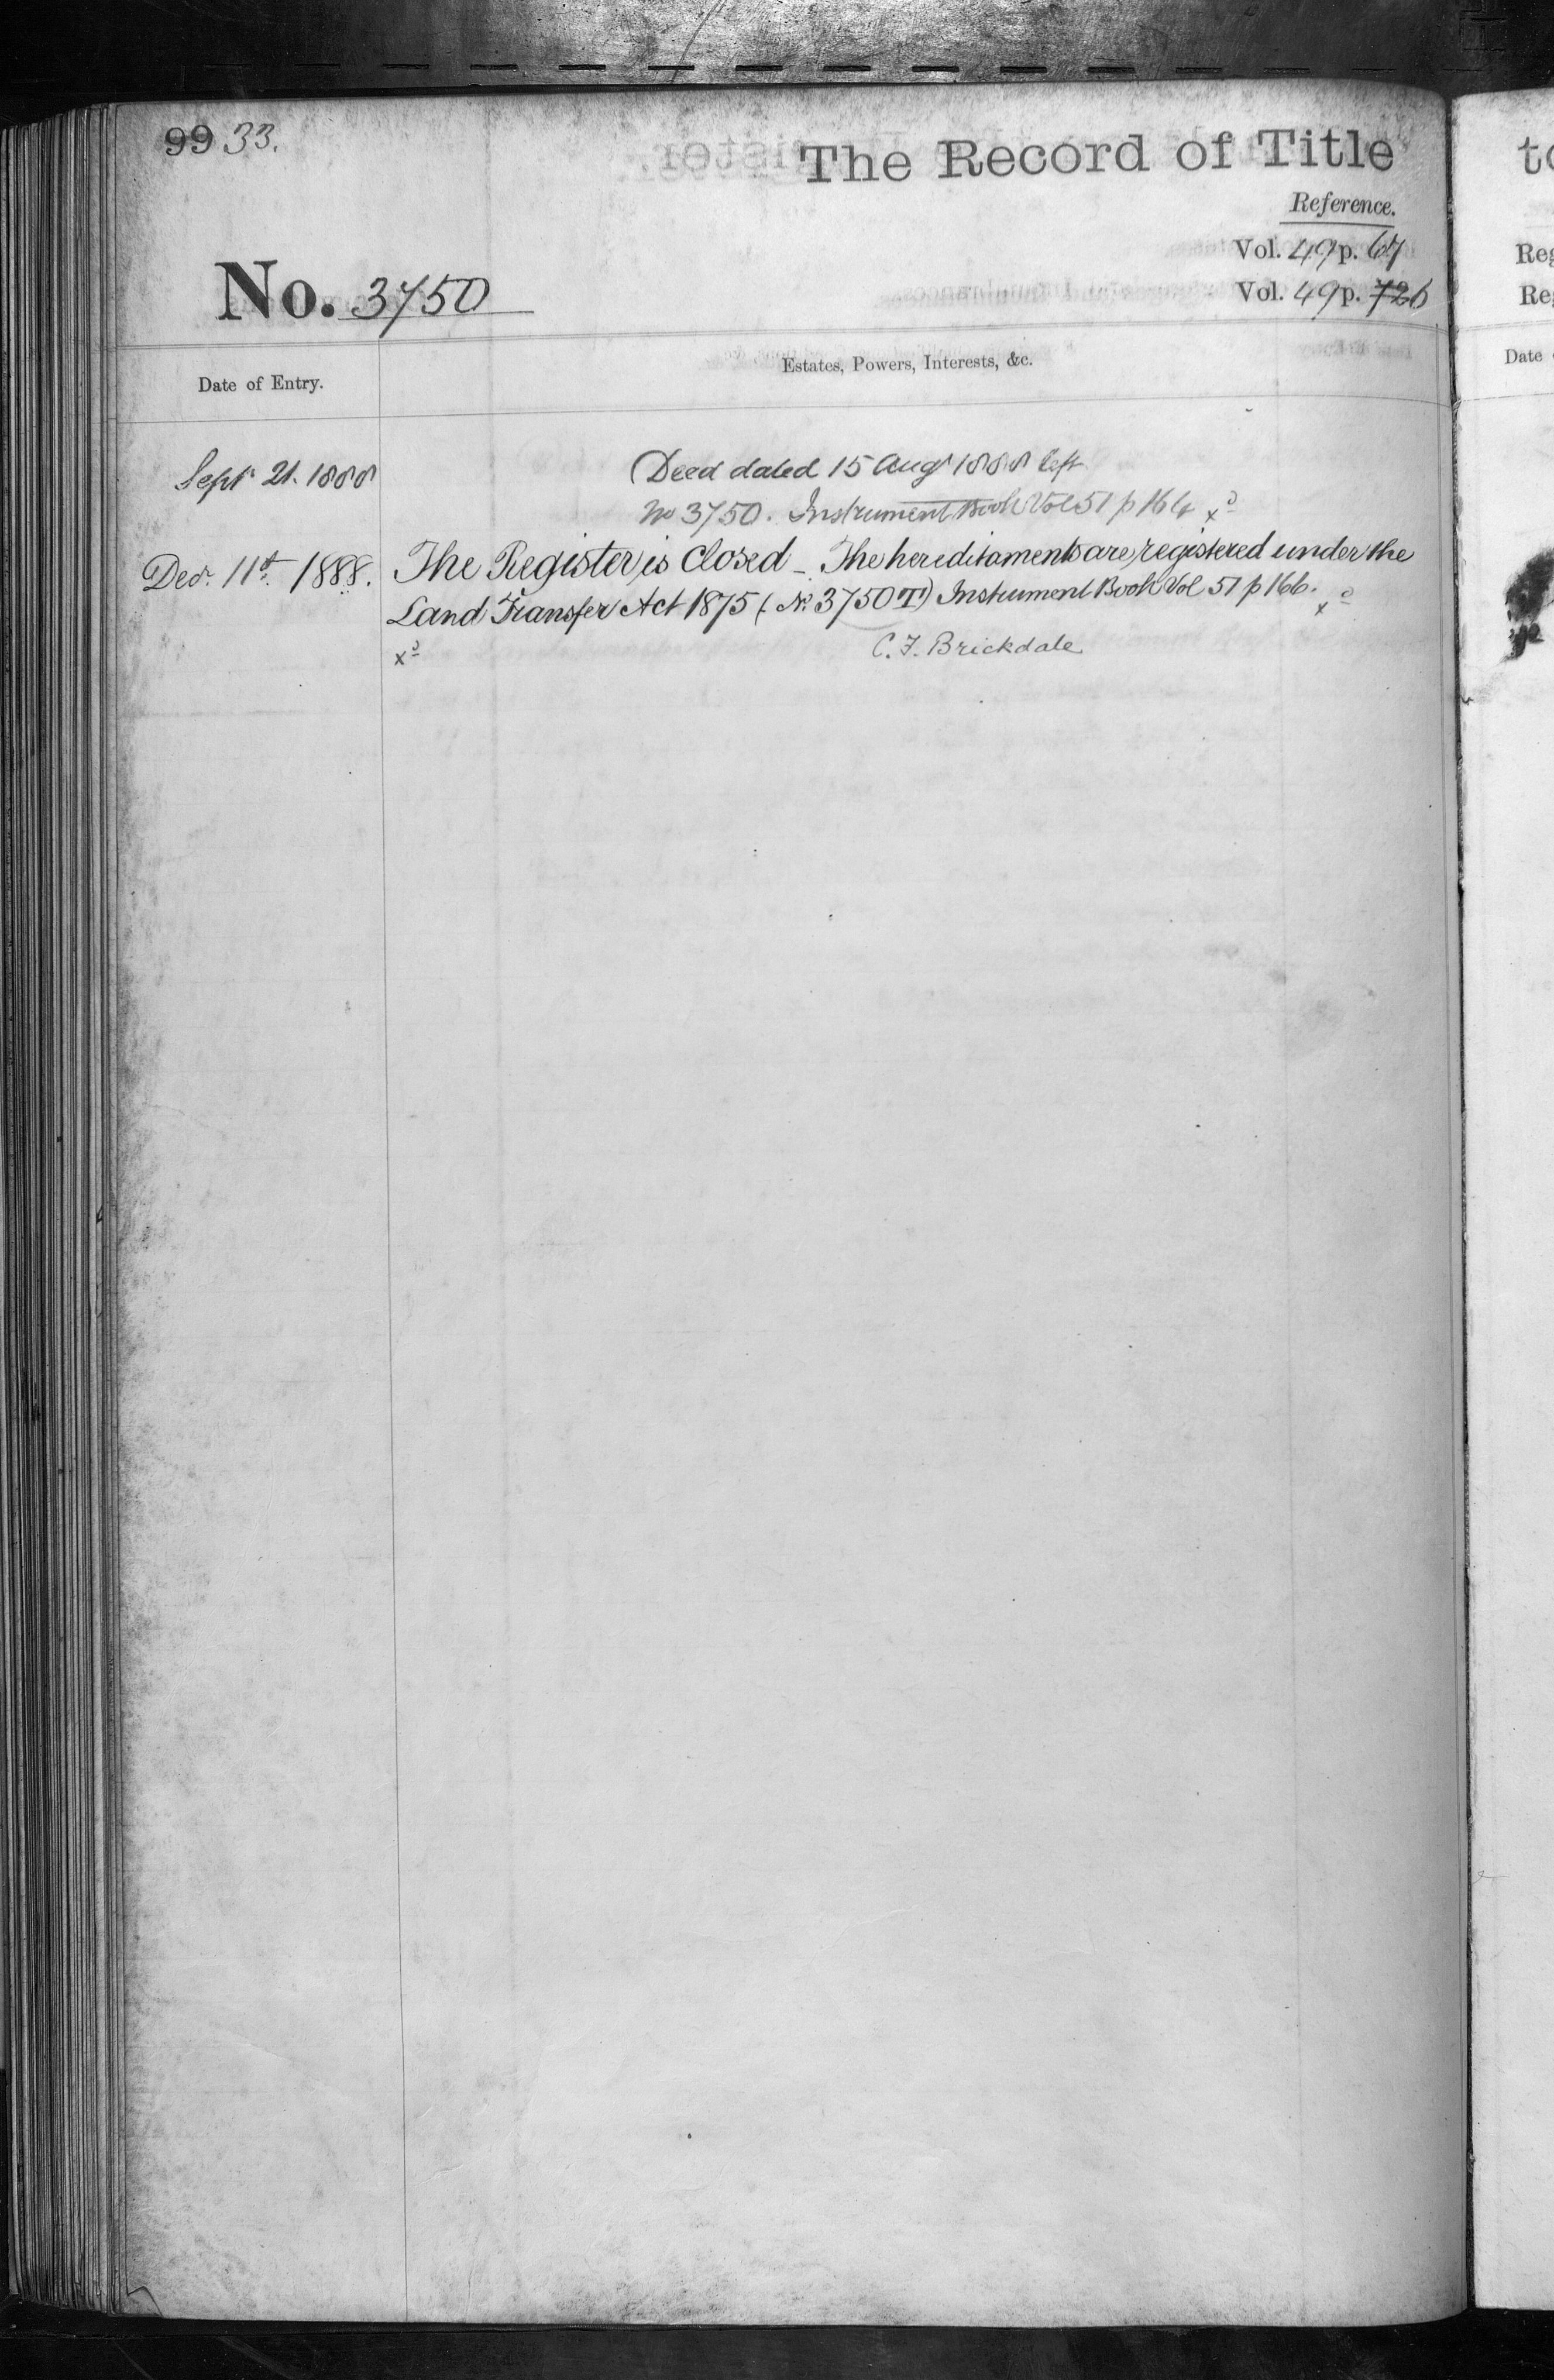 99 33.
The Record of Title
Reference.
Vol. 49 p. 67
Vol. 49 p. 726
No. 3750
Date of Entry.
Estates, Powers, Interests, &c.
Sept 21. 1888
Deed dated 15 Augt 1888 left
No 3750. Instrument Book Vol 51 p 164 xd
Decr. 11th. 1888.
The Register is Closed – The hereditaments are registered under the
Land Transfer Act 1875 (No 3750 T) Instrument Book Vol 51 p 166. xd
xd
C. F. Brickdale
to
Reg
Reg
Date